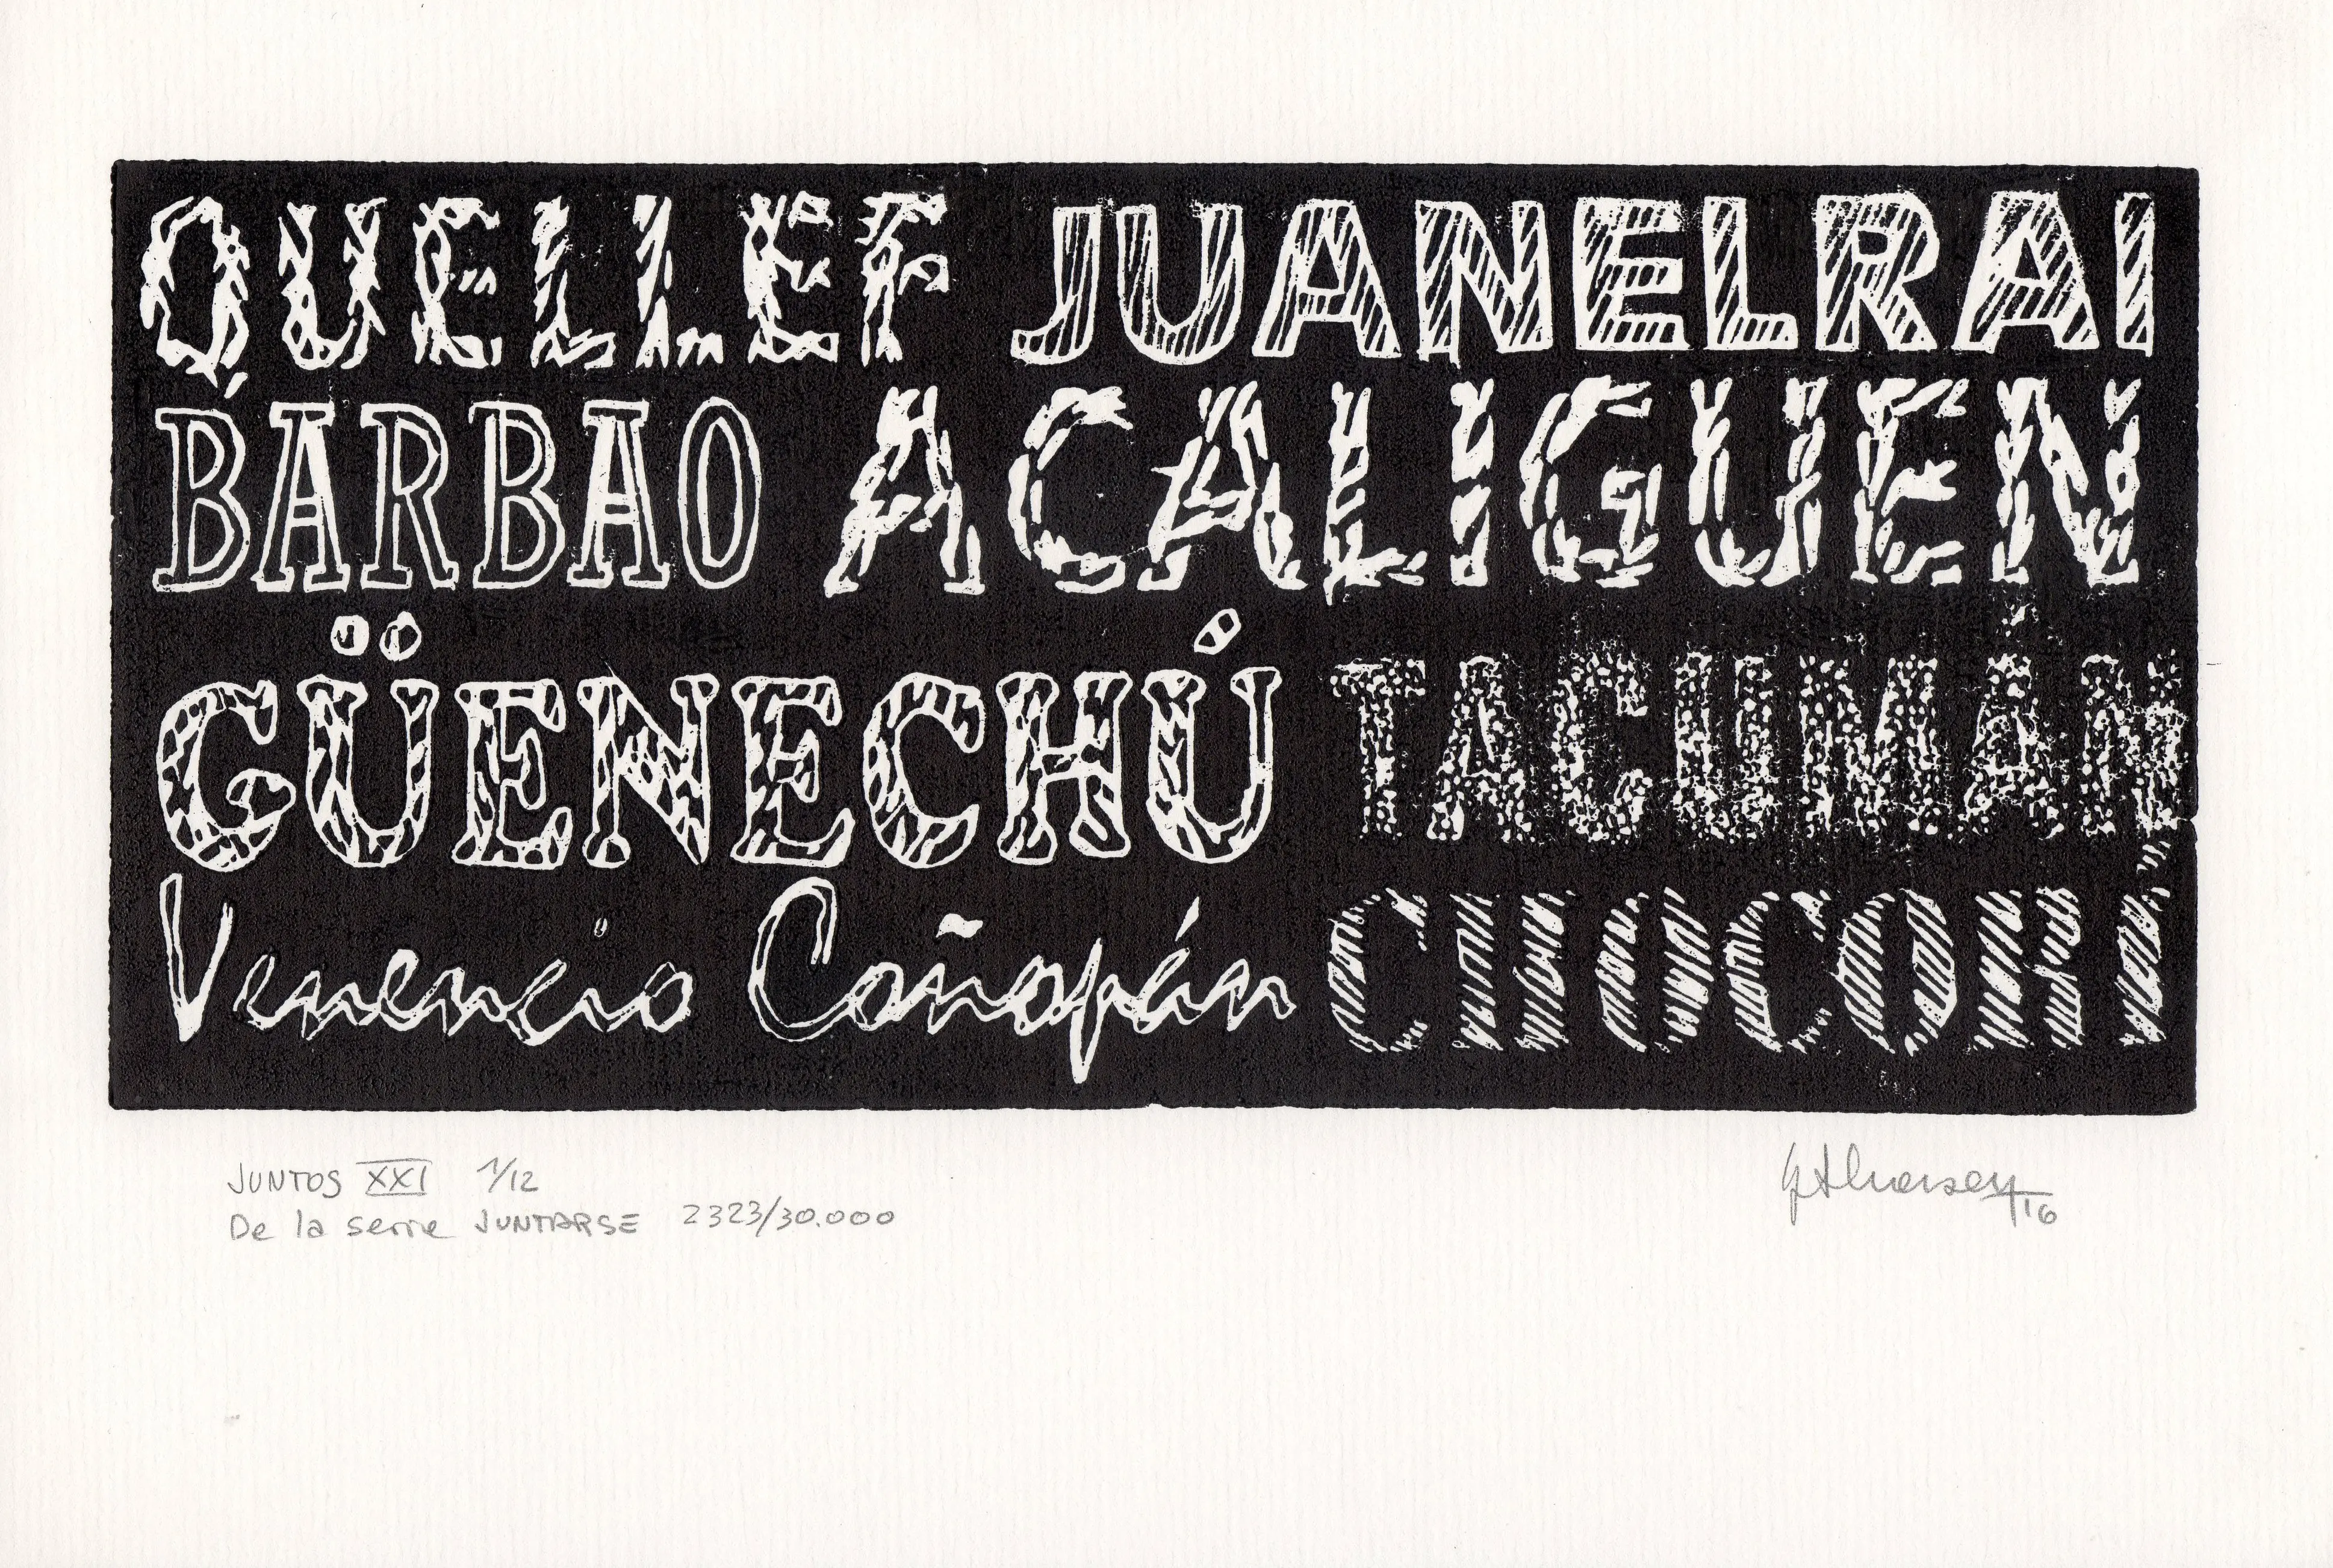 QUELLEF JUANELRAI
BARBAO ACALIGUEN
GÜENECHÚ TACUMÁN
Venencio Coñopán CHOCORÍ
JUNTOS XXI 1/12
De la serie JUNTARSE 2323/30.000
16